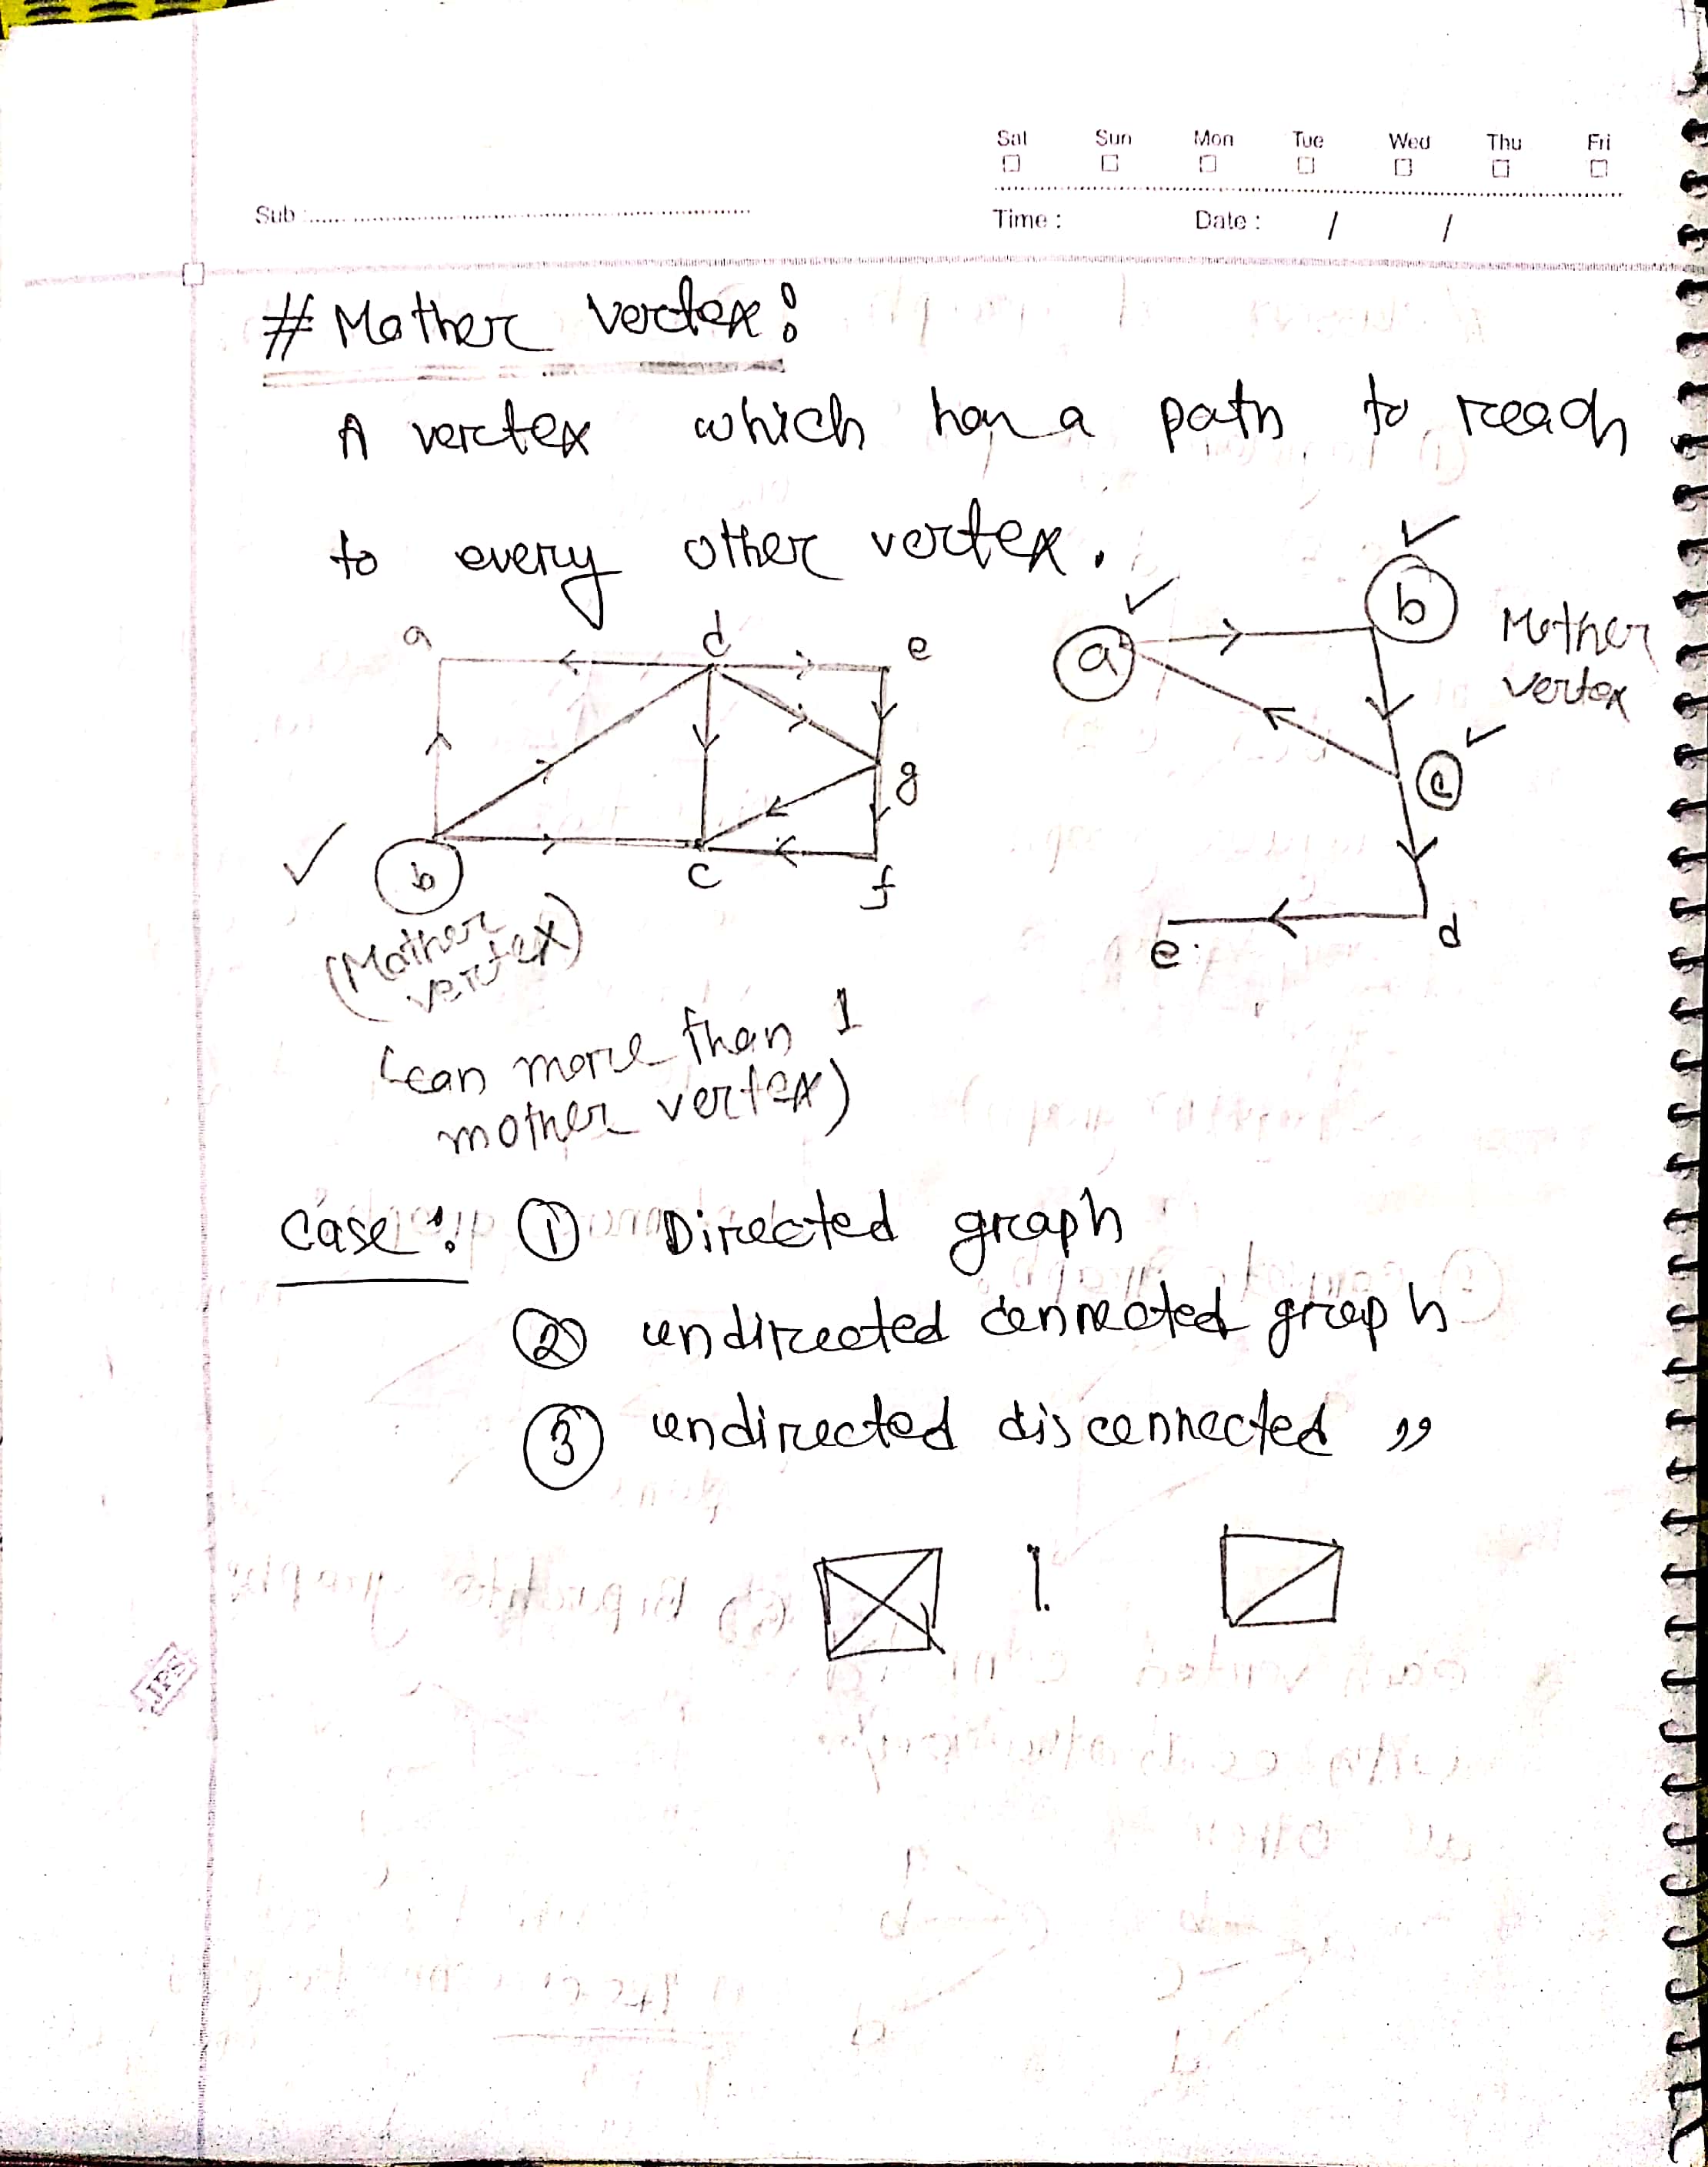 Sat Sun Mon Tue Wed Thu Fri
Sub : Time : Date : / /
# Mother vertex :
A vertex which has a path to reach
to every other vertex.
a d e
b c g f
(Mother
vertex)
a b Mother
vertex
c
e d
(can more than 1
mother vertex)
Case : ① Directed graph
② undirected connected graph
③ undirected disconnected "
JPS